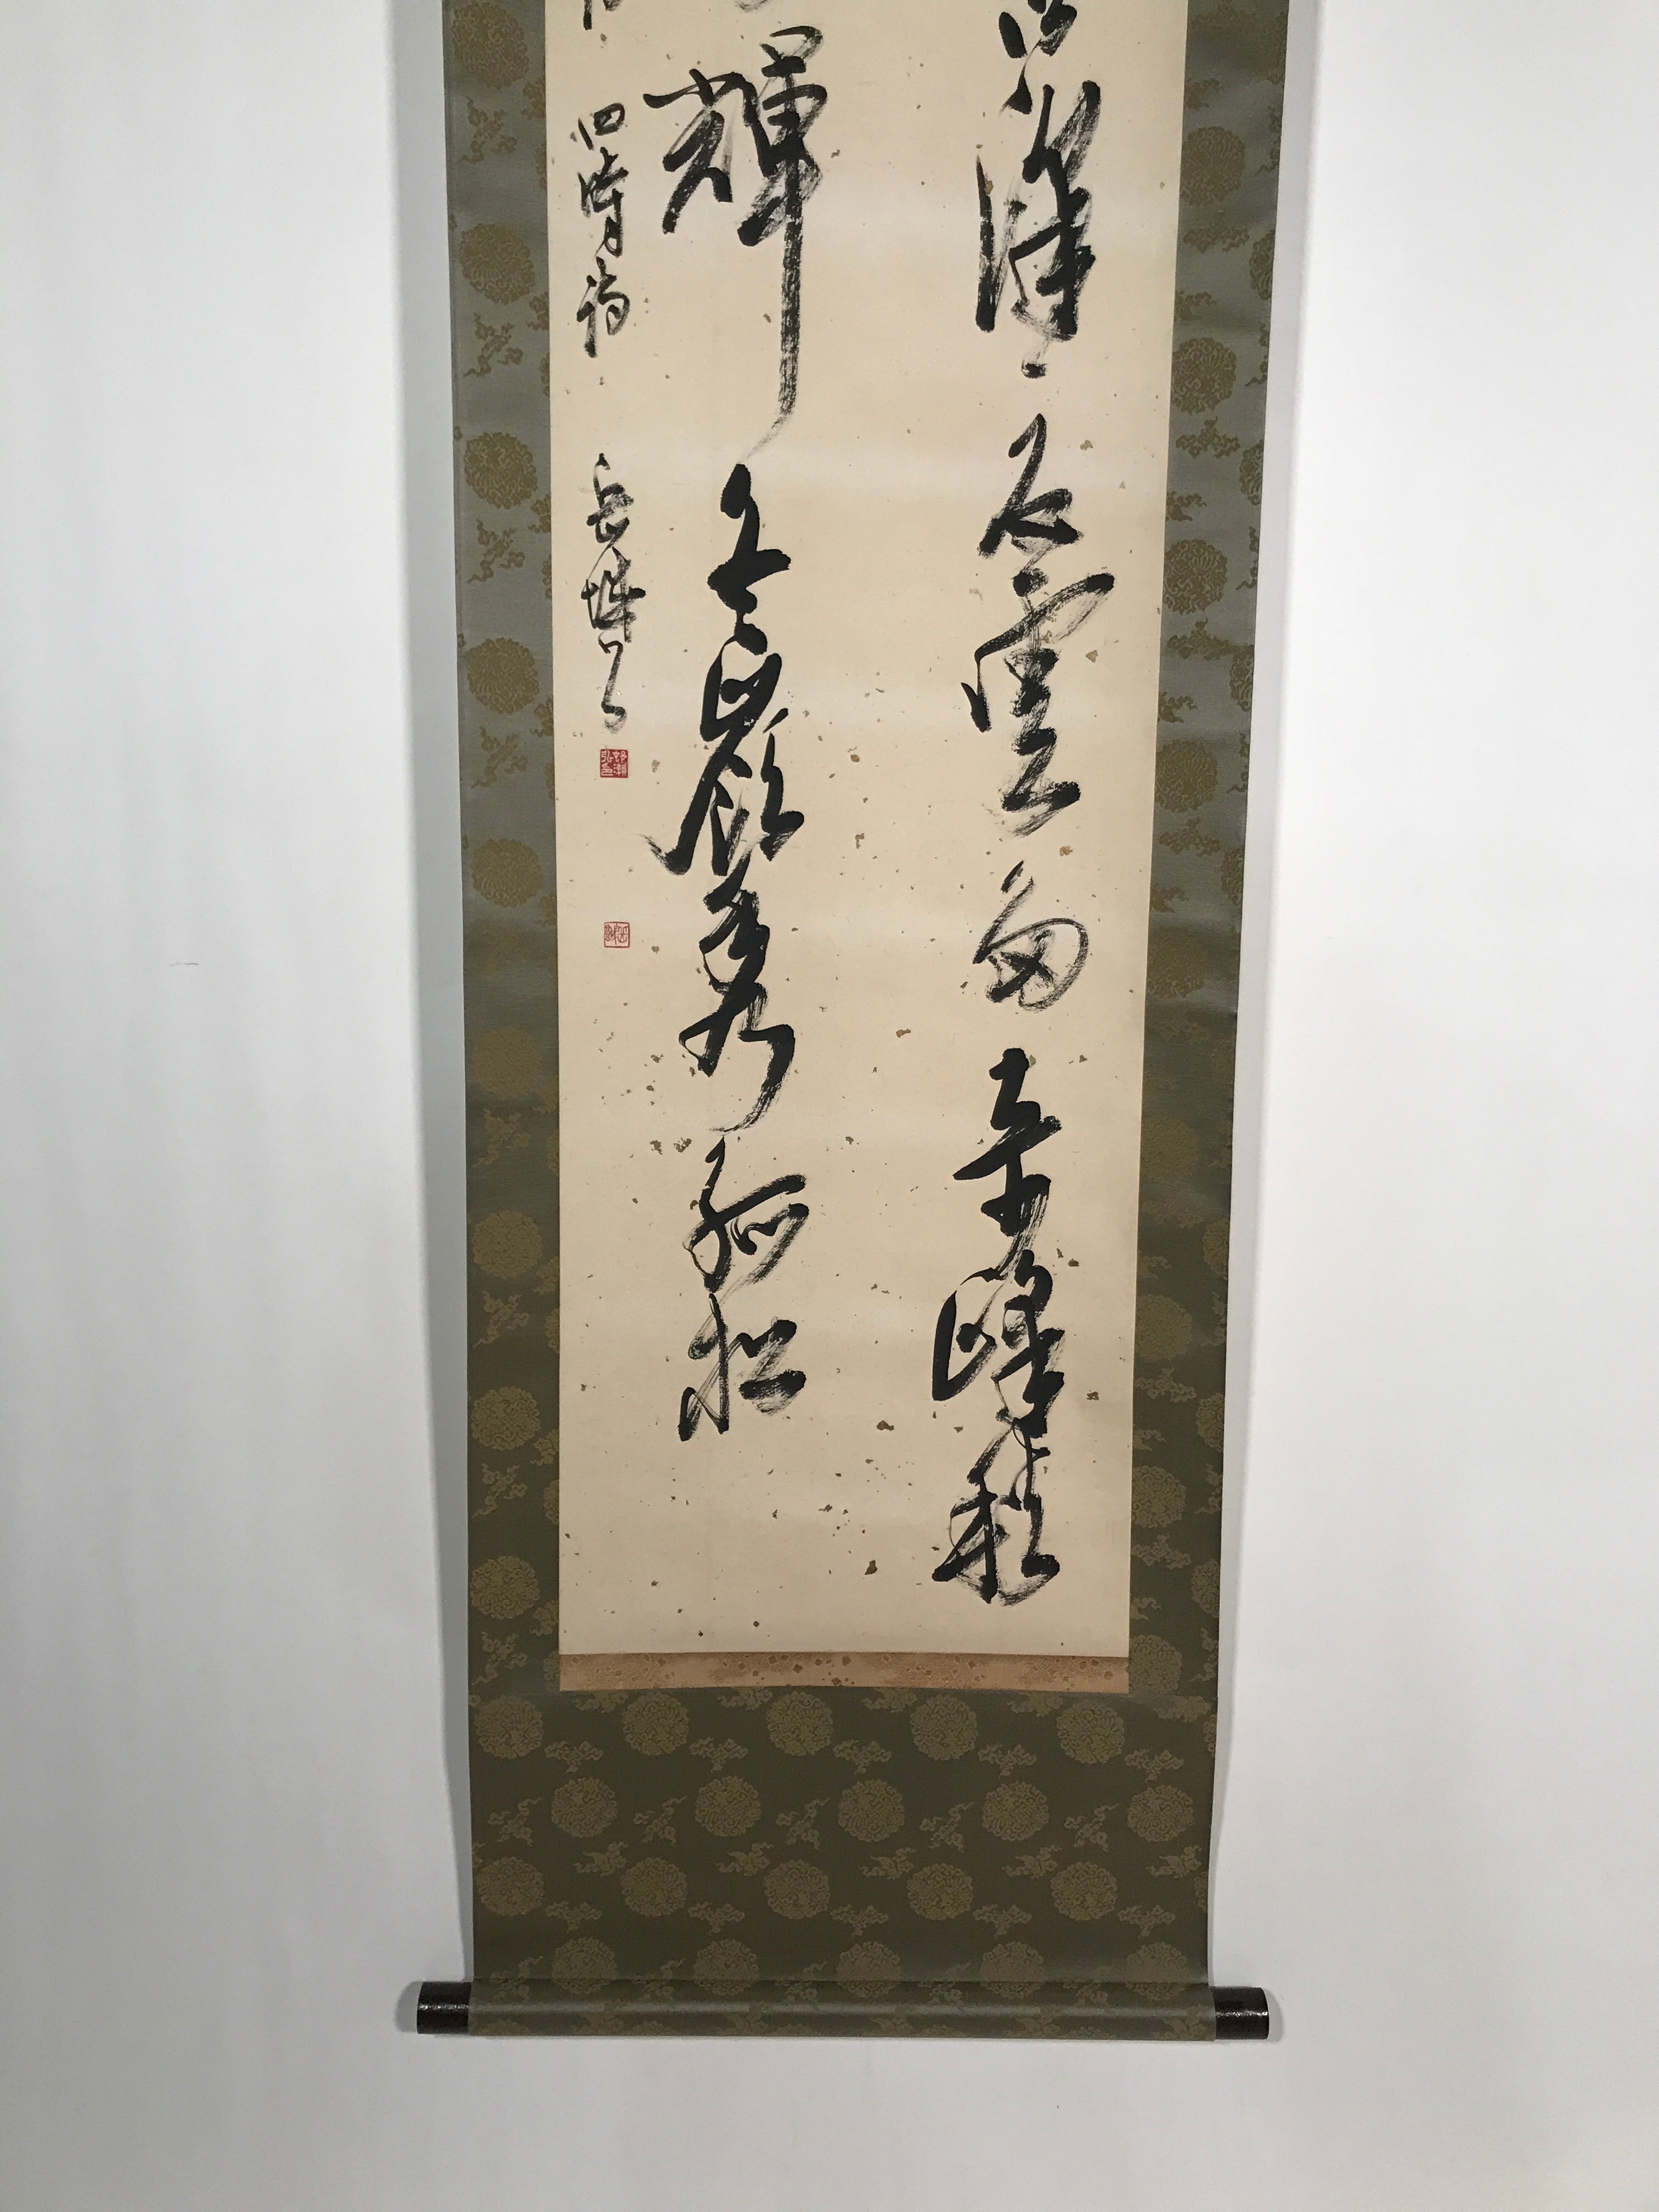 澤夏雲多奇峰秋
輝冬嶺秀孤松
四時詩 岳城